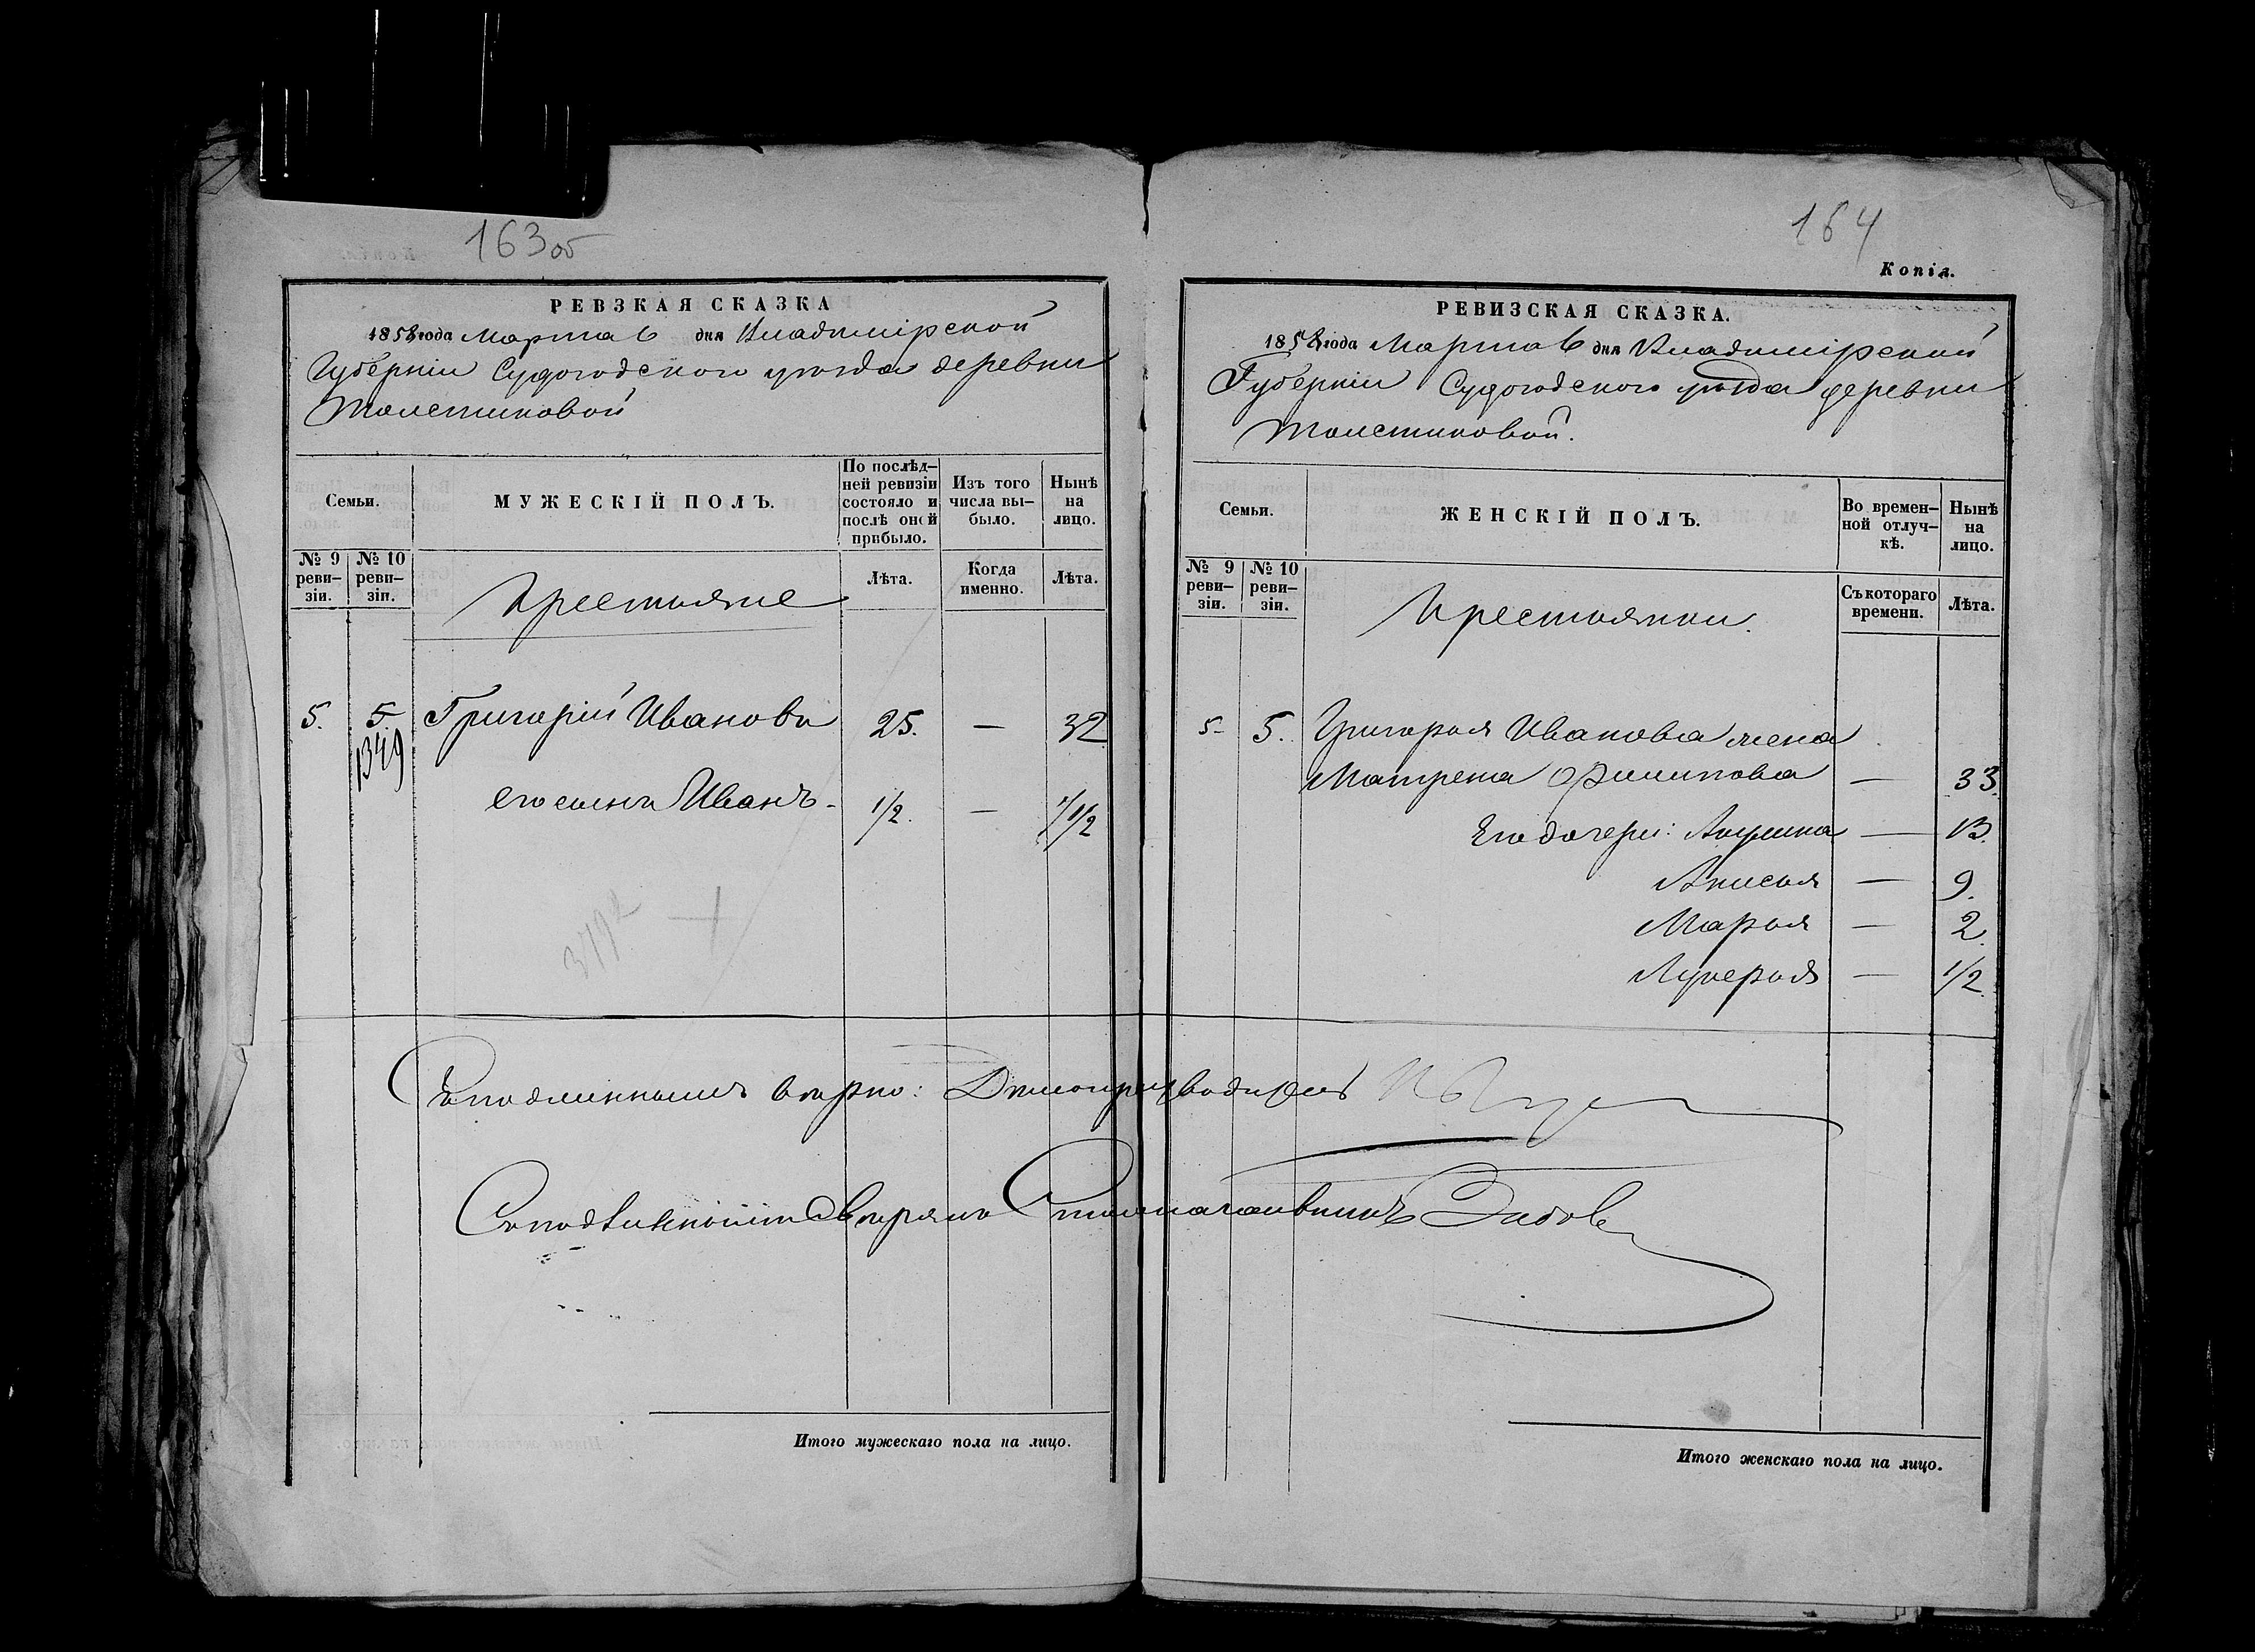 163об
РЕВЗКАЯ СКАЗКА
1858 года Марта 6 дня Владимірской
Губерніи Судогодского уезда деревни
Толстиковой
Семьи.
МУЖЕСКІЙ ПОЛЪ.
По послѣд-
ней ревизіи
состояло и
послѣ оной
прибыло.
Изъ того
числа вы-
было.
Нынѣ
на
лицо.
№ 9
реви-
зіи.
№ 10
реви-
зіи.
Крестьяне
Лѣта.
Когда
именно.
Лѣта.
5. 5 Григорій Ивановъ 25. — 32
1349
его сынъ Иванъ - 1/2. —
Съ подлиннымъ верно: Делопроизводитель
Столоначальникъ
Итого мужескаго пола на лицо.
164
Копія.
РЕВИЗСКАЯ СКАЗКА.
1858 года Марта 6 дня Владимірской
Губерніи Судогодского уезда деревни
Толстиковой.
Семьи.
ЖЕНСКІЙ ПОЛЪ.
Во времен-
ной отлуч-
кѣ.
Нынѣ
на
лицо.
№ 9
реви-
зіи.
№ 10
реви-
зіи.
Крестьянки.
Съ котораго
времени.
Лѣта.
5- 5. Григорья Иванова жена
Матрена Филипова — 33.
Его дочери: Акулина — 13.
Анисья — 9.
Марья — 2.
Лукерья — 1/2.
Итого женскаго пола на лицо.